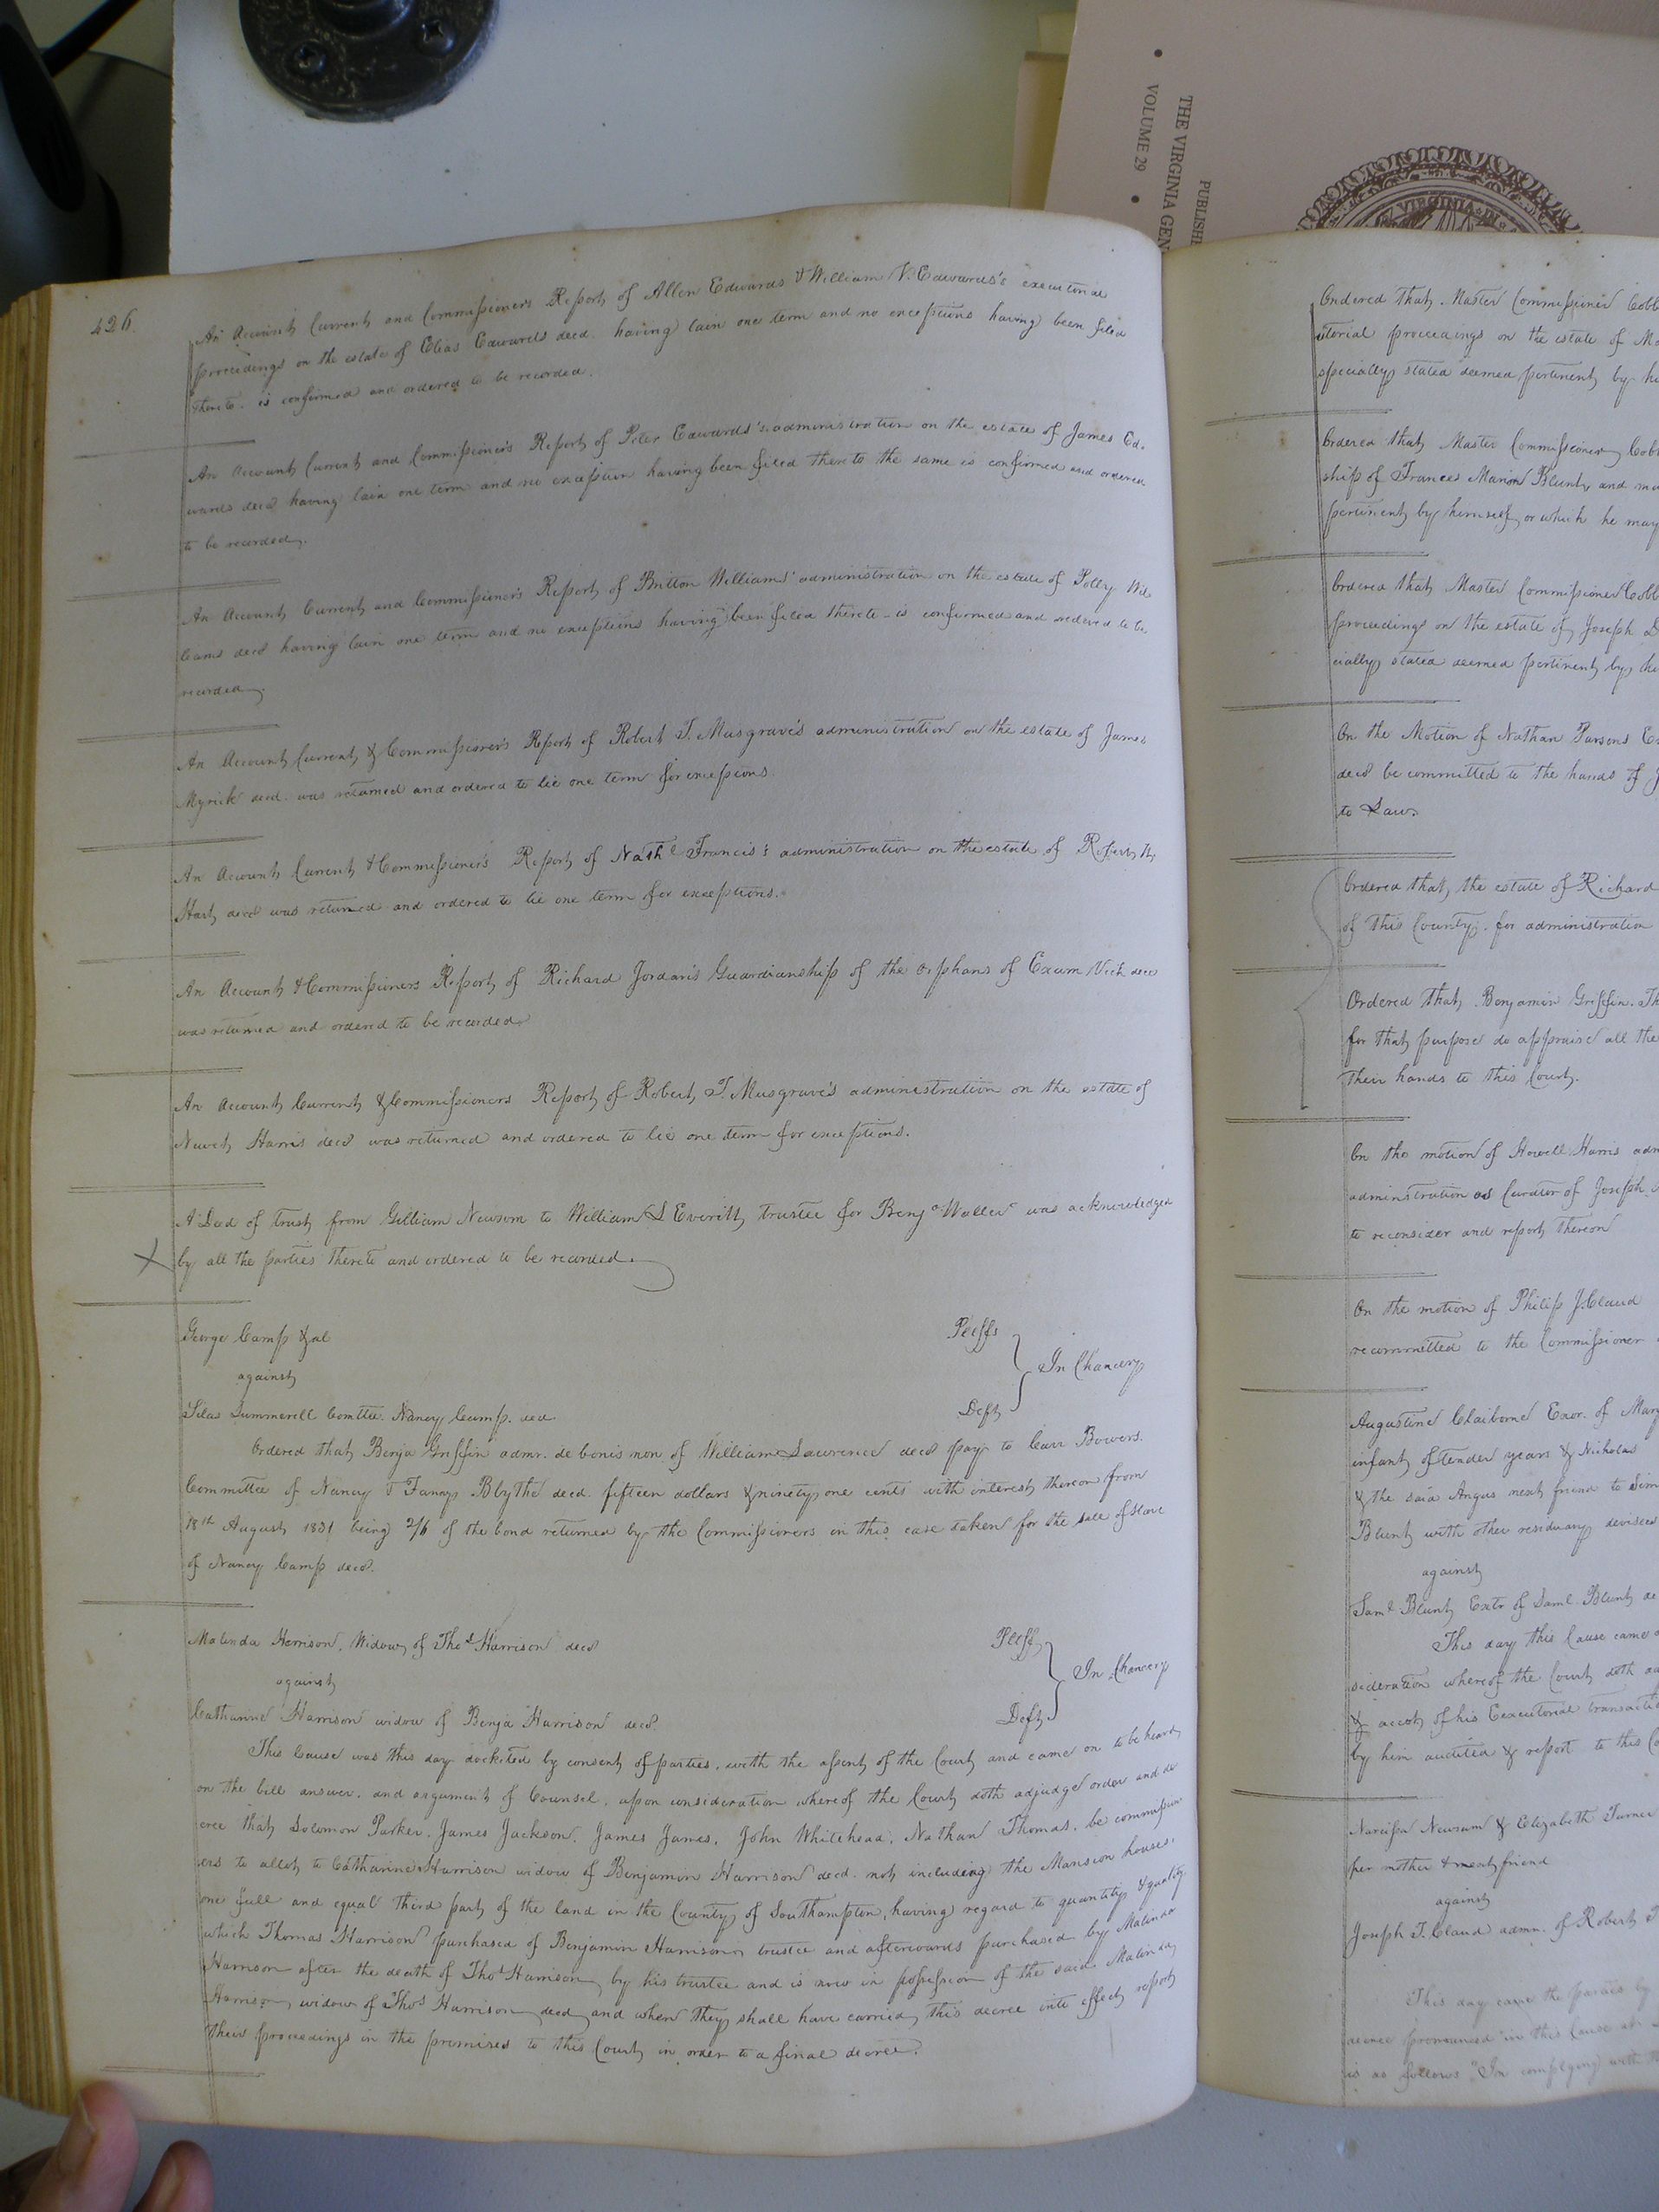 PUBLISH
THE VIRGINIA GEN
• VOLUME 29 •
VIRGINIA IN
426.
An Account Current and Commissioner's Report of Allen Edwards & William V. Edwards's executorial
proceedings on the estate of Elias Edwards decd. having lain one term and no exceptions having been filed
thereto. is confirmed and ordered to be recorded.
An Account Current and Commissioner's Report of Peter Edwards's administration on the estate of James Ed-
wards decd having lain one term and no exception having been filed thereto the same is confirmed and ordered
to be recorded.
An Account Current and Commissioner's Report of Britton Williams' administration on the estate of Polly Wil-
liams decd having lain one term and no exceptions having been filed thereto - is confirmed and ordered to be
recorded.
An Account Current & Commissioner's Report of Robert T. Musgrave's administration on the estate of James
Myrick decd. was returned and ordered to lie one term for exceptions.
An Account Current & Commissioner's Report of Nathl Francis's administration on the estate of Robert
Hart decd was returned and ordered to lie one term for exceptions.
An Account & Commissioners Report of Richard Jordan's Guardianship of the orphans of Exum Vick decd
was returned and ordered to be recorded.
An Account Current & Commissioners Report of Robert T. Musgrave's administration on the estate of
Harris decd was returned and ordered to lie one term for exceptions.
A Deed of trust from Gilliam Newsom to William D Everitt trustee for Benja Waller was acknowledged
by all the parties thereto and ordered to be recorded.
George Camp & al Pltffs
against In Chancery
Silas Summerell Comttee. Nancy Camp. decd Deft
Ordered that Benja Griffin admr. de bonis non of William Lawrence decd pay to Carr Bowers.
Committee of Nancy & Fanny Blythe decd. fifteen dollars & ninety one cents with interest thereon from
18th August 1831 being 2/6 of the bond returned by the Commissioners in this case taken for the sale of slave
of Nancy Camp decd.
Malinda Harrison, Widow of Thos Harrison decd Pltff
against In Chancery
Catharine Harrison widow of Benja Harrison decd. Deft
This Cause was this day docketed by consent of parties, with the assent of the Court and came on to be heard
on the bill answer. and argument of Counsel. upon consideration whereof the Court doth adjudge order and de
cree that Solomon Parker. James Jackson. James James. John Whitehead. Nathan Thomas. be commission
ers to allot to Catharine Harrison widow of Benjamin Harrison decd. not including the Mansion house,
one full and equal third part of the land in the County of Southampton, having regard to quantity & quality
which Thomas Harrison purchased of Benjamin Harrison's trustee and afterwards purchased by Malinda
Harrison after the death of Thos Harrison by his trustee and is now in possession of the said Malinda
Harrison, widow of Thos Harrison decd and when they shall have carried this decree into effect report
their proceedings in the premises to this Court in order to a final decree.
Ordered that Master Commissioner Cobb
utorial proceedings on the estate of
specially stated deemed pertinent by
Ordered that Master Commissioner Cobb
ship of Frances Marion Blunt, and
pertinent by himself, or which he may
Ordered that Master Commissioner Cobb
proceedings on the estate of Joseph
cially stated deemed pertinent by
On the Motion of Nathan Parsons
decd be committed to the hands of
to Law.
Ordered that the estate of Richard
of this County. for administration
Ordered that Benjamin Griffin. Th
for that purpose do appraise all the
their hands to this Court.
On the motion of Howell Harris adm
administration as Curator of Joseph
to reconsider and report thereon
On the motion of Philip J. Claud
recommitted to the Commissioner
Augustine Claiborne Exor. of Mary
infant of tender years & Nicholas
& the said Angus next friend to Sim
Blunt with other residuary devisees
against
Saml Blunt Extr of Saml. Blunt de
This day this Cause came
sideration whereof the Court doth
& accots of his Executorial transacti
by him audited & report to this Co
Narcissa Newsum & Elizabeth Turner
her mother & next friend
against
Joseph T. Claud admr. of Robert
This day came the parties by
decree pronounced in this Cause
is as follows "In complying with